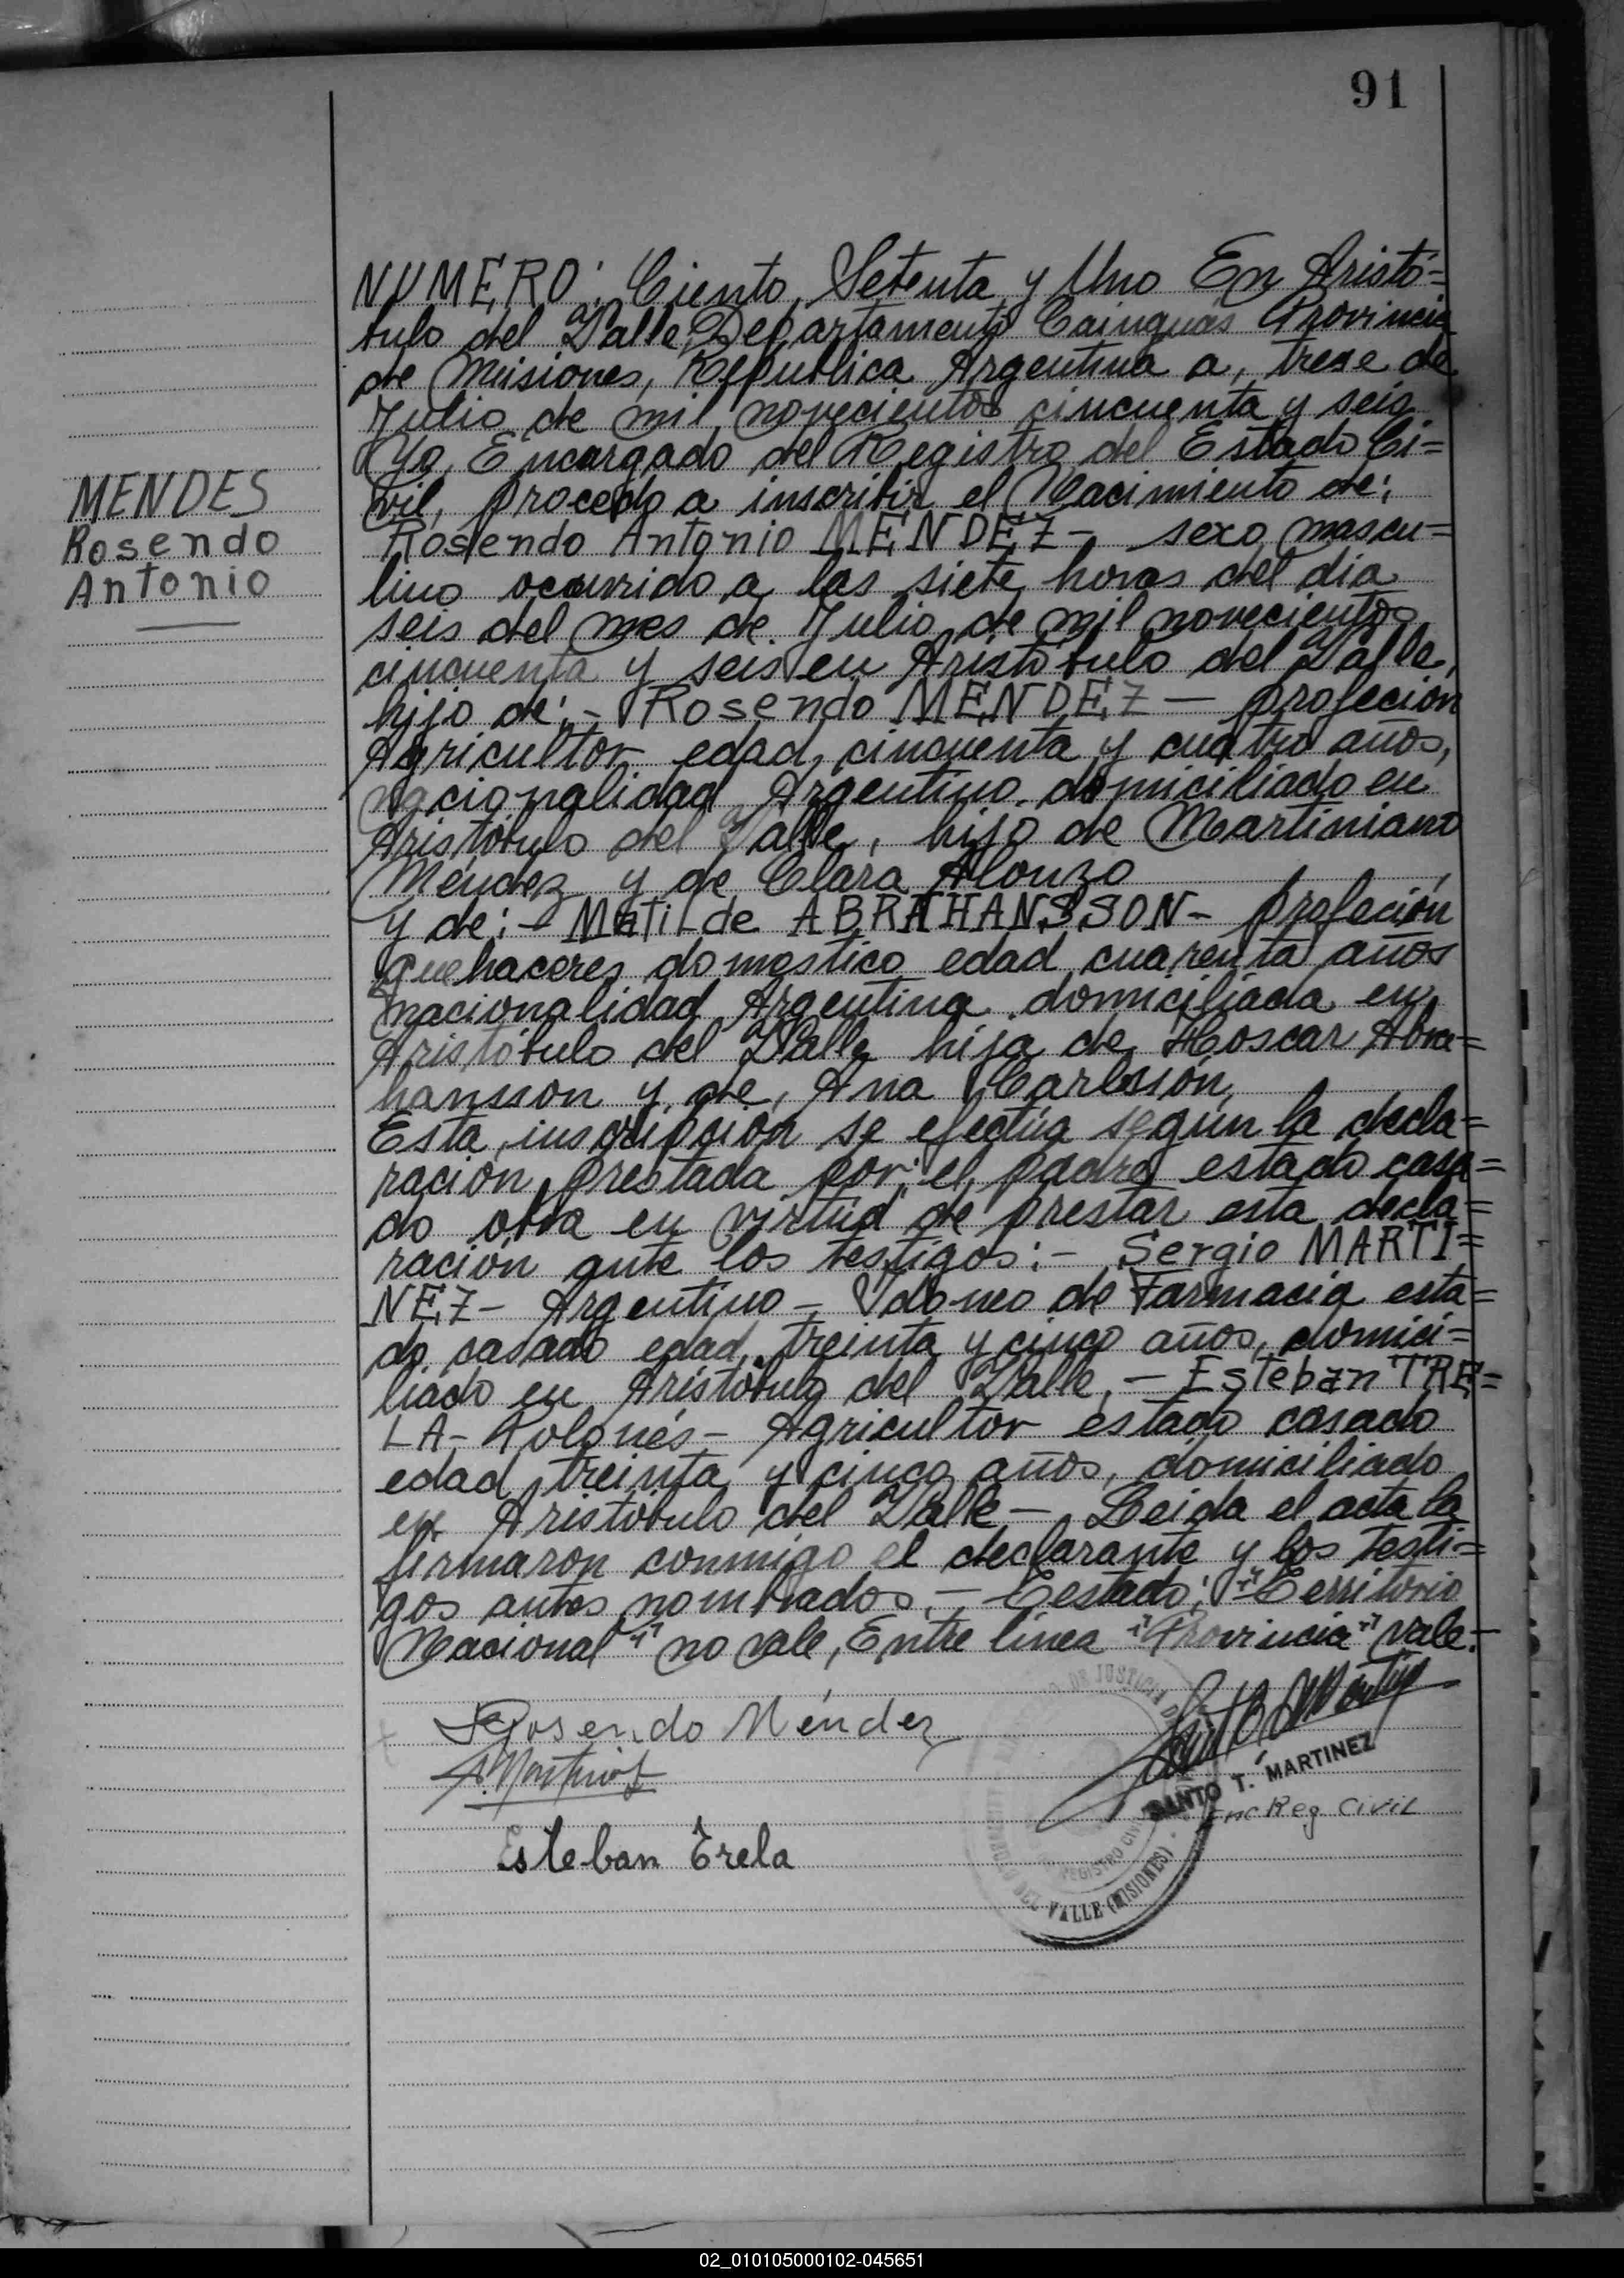 91
NUMERO: Ciento Setenta y Uno En Aristó=
bulo del Valle, Departamento Cainguás Provincia
de Misiones, República Argentina a, trese de
Julio de mil novecientos cincuenta y seis
Yo, Encargado del Registro del Estado Ci=
vil, procedo a inscribir el Nacimiento de:
MENDES
Rosendo
Antonio
Rosendo Antonio MENDEZ - sexo mascu=
lino ocurrido a las siete horas del día
seis del mes de Julio de mil novecientos
cincuenta y seis en Aristóbulo del Valle,
hijo de:- Rosendo MENDEZ — profeción
Agricultor edad, cincuenta y cuatro años,
nacionalidad Argentino domiciliado en
Aristóbulo del Valle, hijo de Martiniano
Méndez y de Clara Alonzo
y de:- Matilde ABRAHANSSON - profeción
quehaceres domestico edad cuarenta años
nacionalidad Argentina domiciliada en
Aristóbulo del Valle hija de Hoscar Abra=
hansson y de, Ana Carlssón,
Esta inscripción se efectúa según la decla=
ración prestada por el padre estado casa=
do obra en virtud de prestar esta decla=
ración ante los testigos:- Sergio MARTI=
NEZ - Argentino - Idoneo de Farmacia esta=
do casado edad treinta y cinco años, domici=
liado en Aristóbulo del Valle, - Esteban TRE=
LA - Polonés - Agricultor estado casado
edad treinta y cinco años, domiciliado
en Aristóbulo del Valle - Leida el acta la
firmaron conmigo el declarante y los testi=
gos antes nombrados. - Testado: "Territorio
Nacional" no vale, Entre línea "Provincia" vale.-
Rosendo Méndez
S. Martinez
Esteban Trela
SANTO T. MARTINEZ
Enc Reg Civil
DE JUSTICIA
REGISTRO CIVIL
DEL VALLE (MISIONES)
02_010105000102-045651